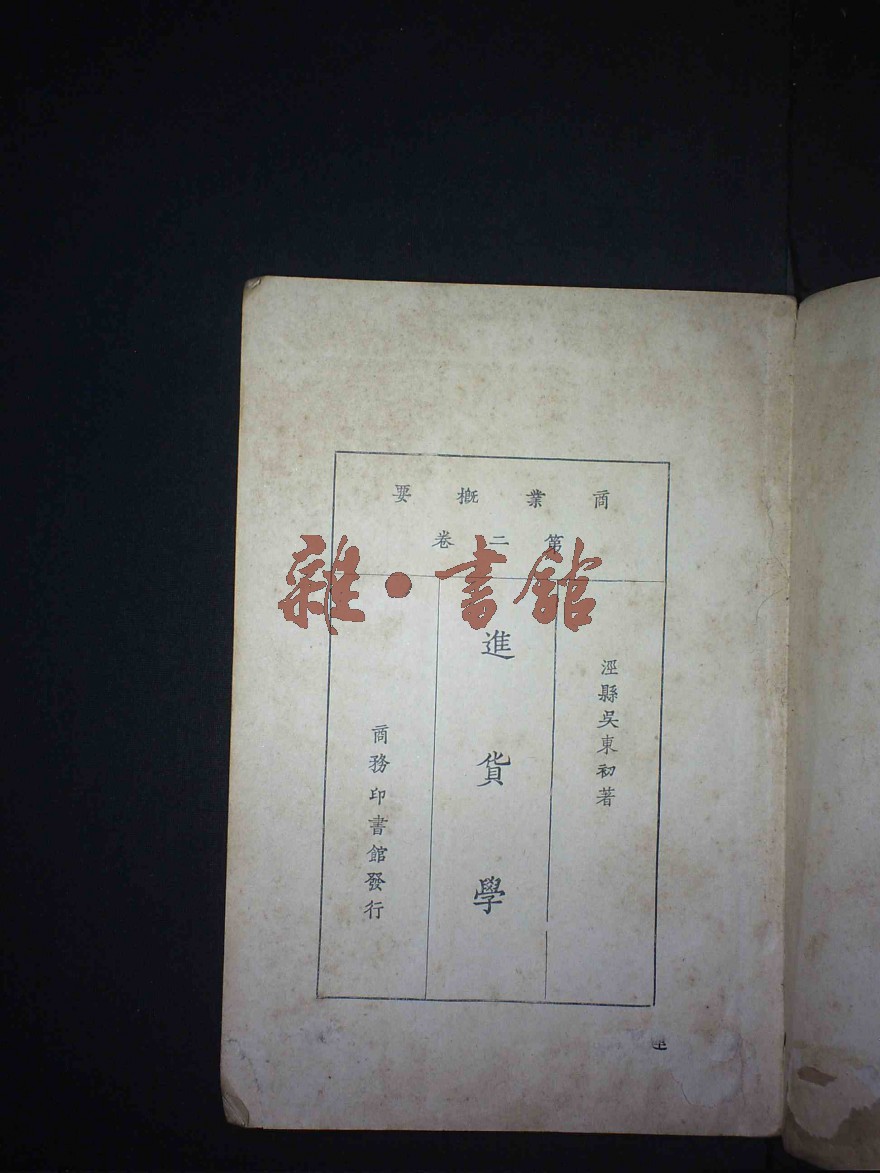 商業概要
第二卷
涇縣吳東初著
進貨學
商務印書館發行
雜·書館